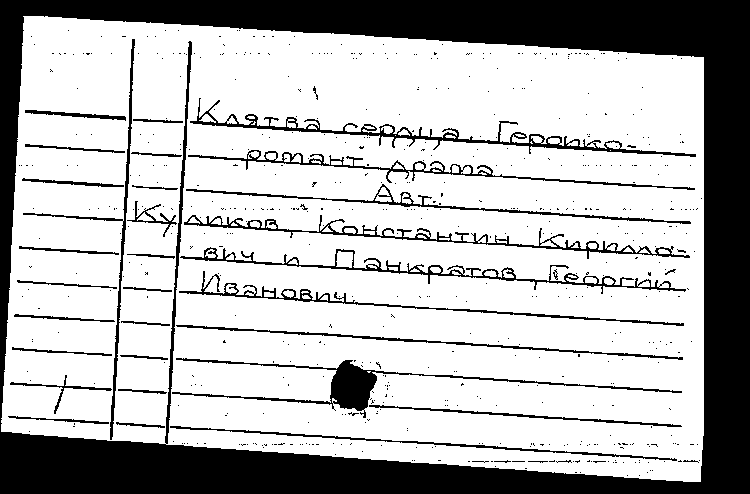 Клятва сердца. Героико-
романт. драма.
Авт.:
Куликов, Константин Кирилло-
вич и Панкратов, Георгий
Иванович.